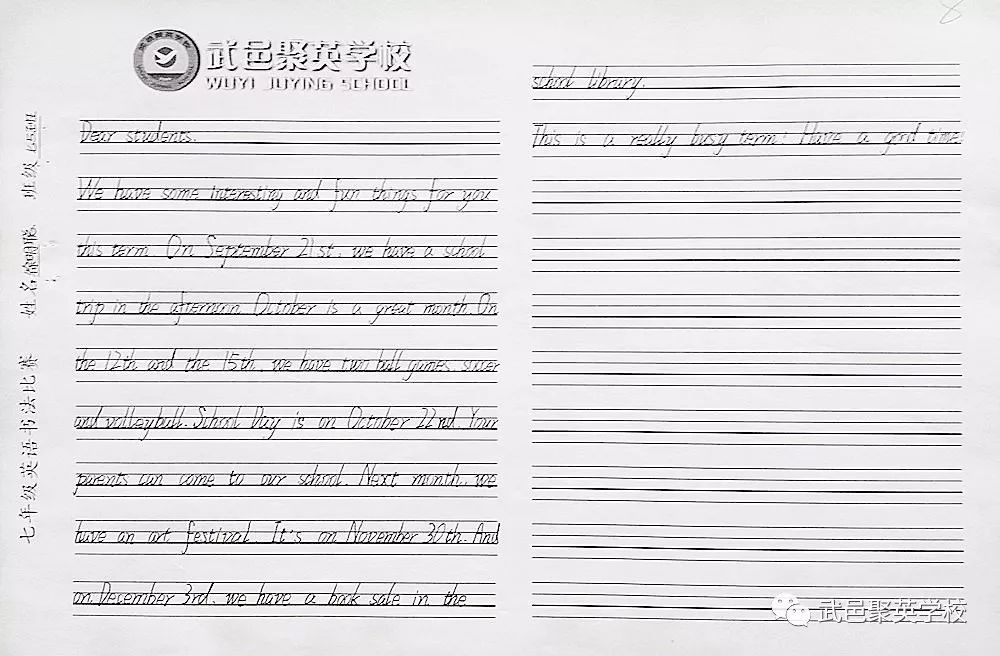 武邑聚英学校
WUYI JUYING SCHOOL
七年级英语书法比赛 姓名 班级
Dear students.
We have some interesting and fun things for you
this term. On September 21st, we have a school
trip in the afternoon. October is a great month. On
the 12th and the 15th, we have two ball games, soccer
and volleyball. School Day is on October 22nd. Your
parents can come to our school. Next month, we
have an art festival. It's on November 30th. And
on December 3rd, we have a book sale in the
8
school library.
This is a really busy term! Have a good time!
武邑聚英学校